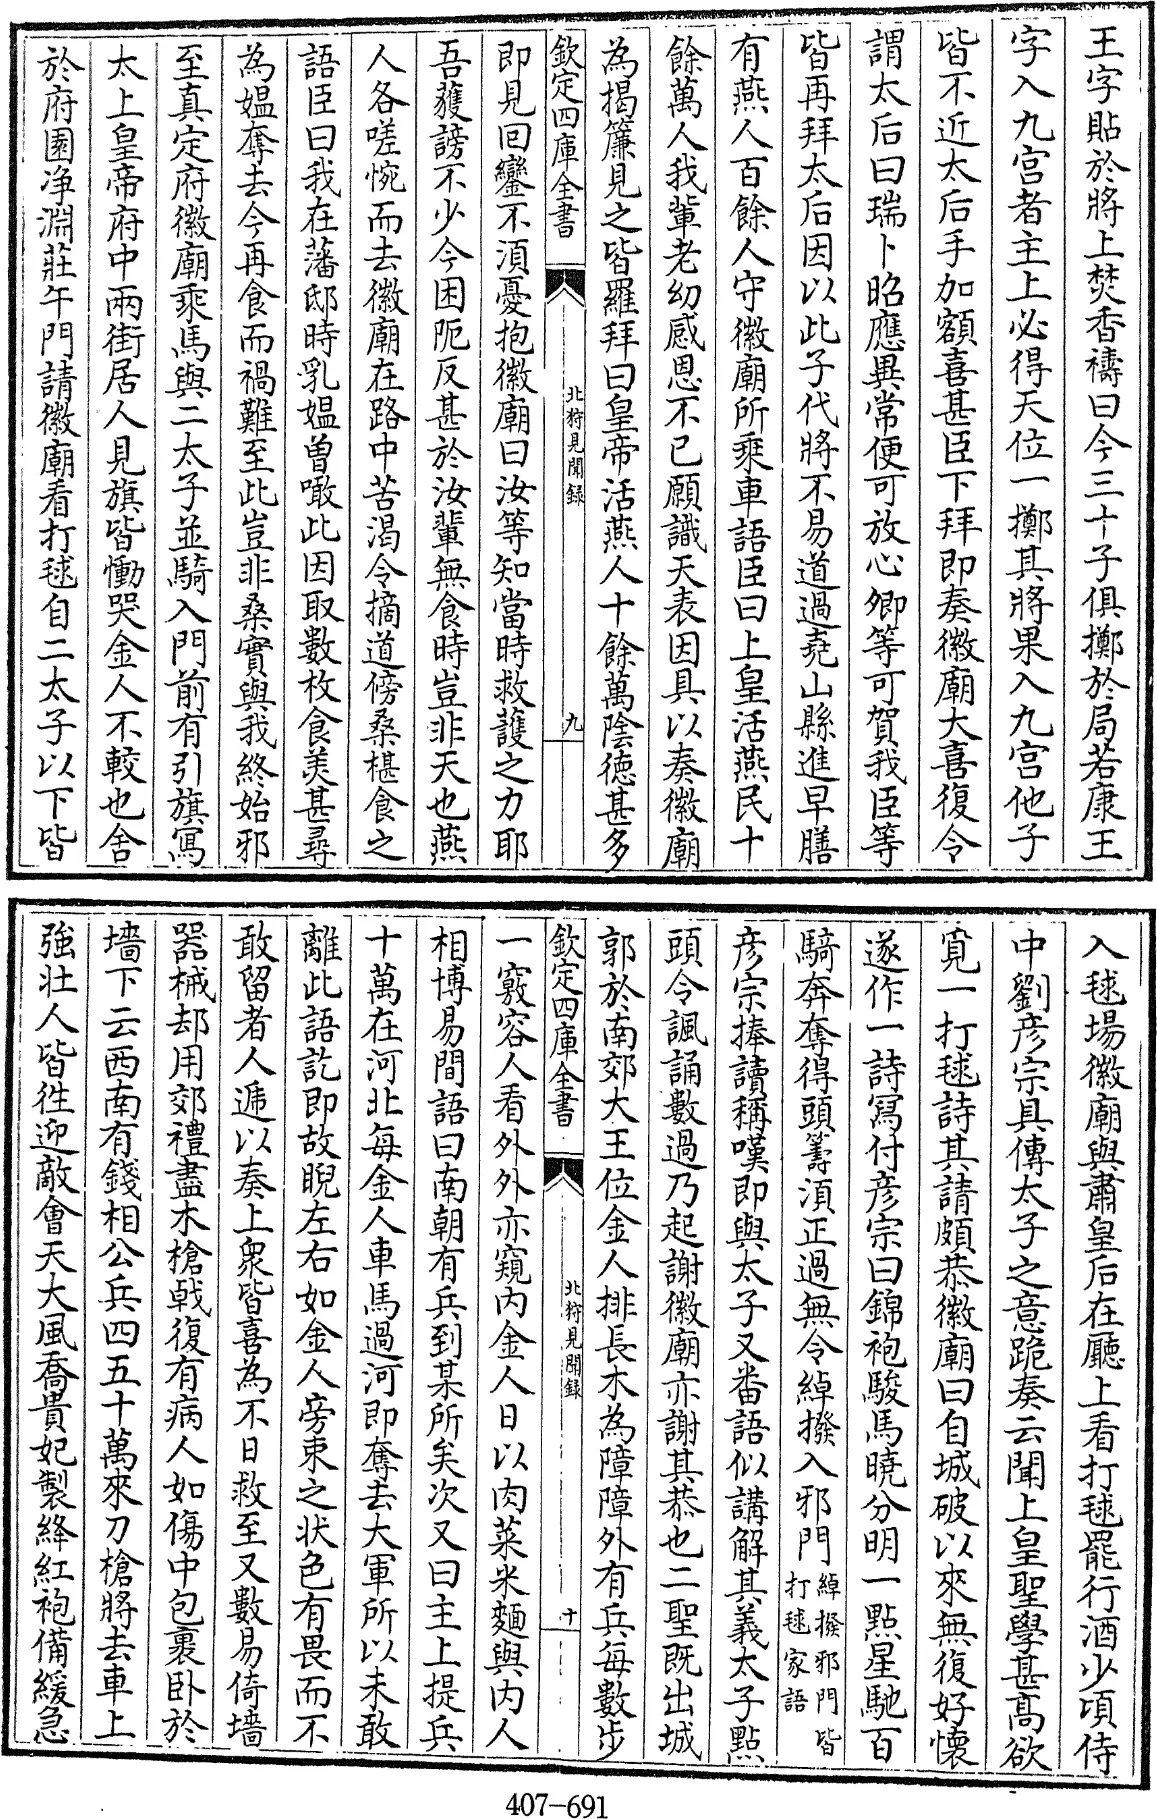 王字貼於將上焚香禱曰今三十子俱擲於局若康王
字入九宫者主上必得天位一擲其將果入九宫他子
皆不近太后手加額喜甚臣下拜即奏徽廟大喜復令
謂太后曰瑞卜昭應異常便可放心卿等可賀我臣等
皆再拜太后因以此子代將不易道過堯山縣進早膳
有燕人百餘人守徽廟所乘車語臣曰上皇活燕民十
餘萬人我軰老幼感恩不已願識天表因具以奏徽廟
為揭簾見之皆羅拜曰皇帝活燕人十餘萬陰徳甚多
欽定四庫全書
北狩見聞錄
九
即見回鑾不須憂抱徽廟曰汝等知當時救護之力耶
吾蘉謗不少今困阨反甚於汝軰無食時豈非天也燕
人各嗟惋而去徽廟在路中苦渴令摘道傍桑椹食之
語臣曰我在藩邸時乳媪曽噉此因取數枚食美甚尋
為媪奪去今再食而禍難至此豈非桑實與我終始邪
至真定府徽廟乘馬與二太子並騎入門前有引旗寫
太上皇帝府中兩街居人見旗皆慟哭金人不較也舍
於府園净淵莊午門請徽廟看打毬自二太子以下皆
入毬場徽廟與肅皇后在廳上看打毬罷行酒少項侍
中劉彦宗具傳太子之意跪奏云聞上皇聖學甚高欲
覓一打毬詩其請頗恭徽廟曰自城破以來無復好懷
遂作一詩寫付彦宗曰錦袍駿馬曉分明一㸃星馳百
騎奔奪得頭籌須正過無令綽撥入邪門綽撥邪門皆打毬家語
彦宗捧讀稱嘆即與太子又畨語似講解其義太子㸃
頭令諷誦數過乃起謝徽廟亦謝其恭也二聖既出城
郭於南郊大王位金人排長木為障障外有兵每數步
欽定四庫全書
北狩見聞錄
十
一竅容人看外外亦窺内金人日以肉菜米麵與内人
相博易間語曰南朝有兵到某所矣次又曰主上提兵
十萬在河北每金人車馬過河即奪去大軍所以未敢
離此語訖即故睨左右如金人旁束之状色有畏而不
敢留者人遞以奏上衆皆喜為不日救至又數易倚墻
器械却用郊禮盡木槍㦸復有病人如傷中包裹卧於
墻下云西南有錢相公兵四五十萬來刀槍將去車上
強壯人皆徃迎敵會天大風喬貴妃製絳紅袍備緩急
407-691